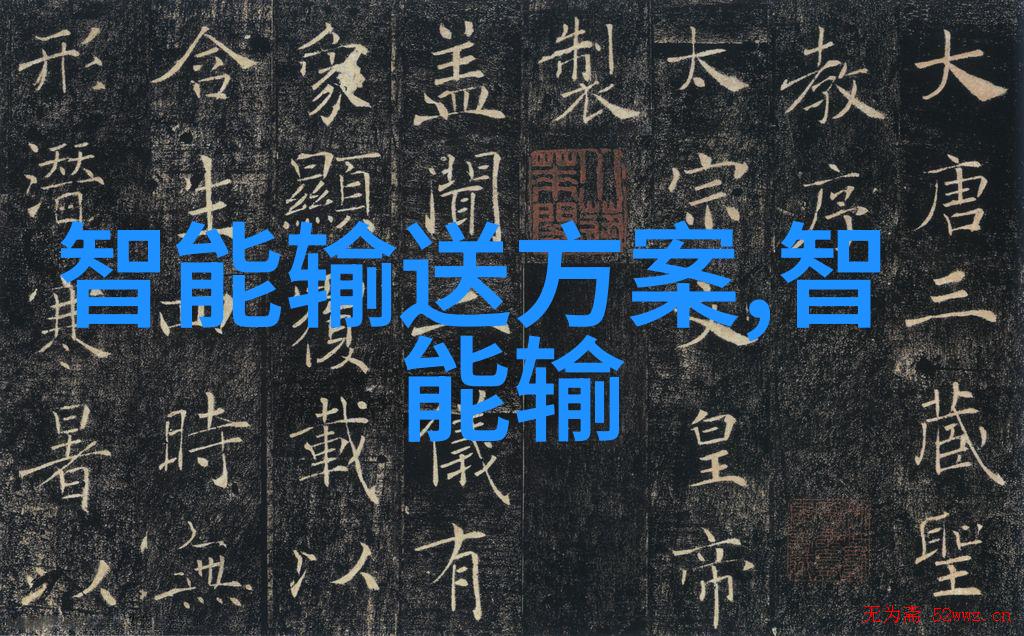 大唐三藏聖
教序
太宗文皇帝
製
盖聞二儀有
象顯覆載以
含生四時無
形潛寒暑以
智能输送方案,智
能输
无为斋 52wwz.cn